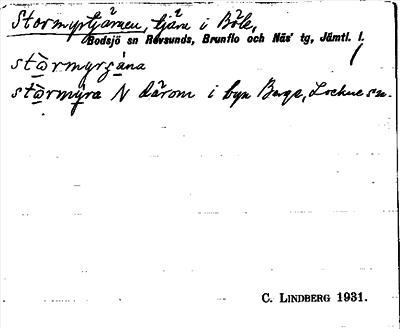 Stormyrtjärnen, tjärn i Böle,
Bodsjö sn Revsunds, Brunflo och Näs' tg, Jämtl. l.
stòrmyrʒána
stòrmyra N därom i byn Berge, Lockne sn.
C. LINDBERG 1931.